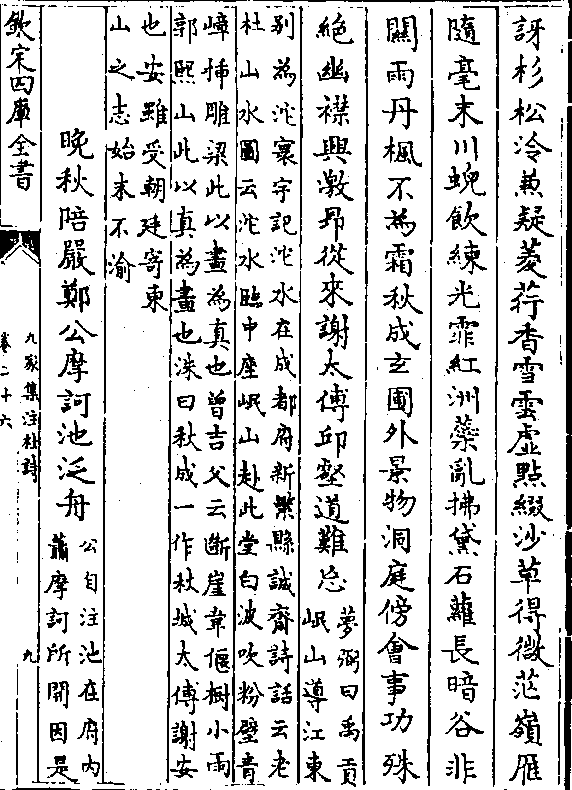 訝杉松冷兼疑菱荇香雪雲虚點綴沙草得微茫嶺雁
隨毫末川蜺飲練光霏紅洲蘂亂拂黛石蘿長暗谷非
關雨丹楓不為霜秋成玄圃外景物洞庭傍㑹事功殊
絶幽襟興激昻從來謝太傅邱壑道難忘
夢弼曰禹貢
岷山導江東
别為沱寰宇記沱水在成都府新繁縣誠齋詩話云老
杜山水圖云沱水臨中座岷山赴此堂白波吹粉壁青
嶂揷雕梁此以畫為真也曾吉父云斷崖韋偃樹小雨
郭熙山此以真為畫也洙曰秋成一作秋城太傅謝安
也安雖受朝廷寄東
山之志始末不渝
晩秋陪嚴鄭公摩訶池泛舟
公自注池在府内
蕭摩訶所開因是
欽定四庫全書
九家集注杜詩
卷二十六
九